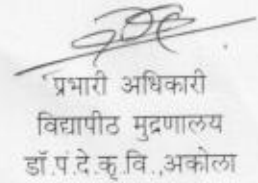 प्रभारी अधिकारी
विद्यापीठ मुद्रणालय
डॉ.पं.दे.कृ.वि.,अकोला